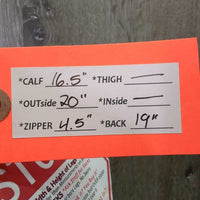 *CALF 16.5" *THIGH —
*OUTside 20" *INside —
*ZIPPER 4.5" *BACK 19"